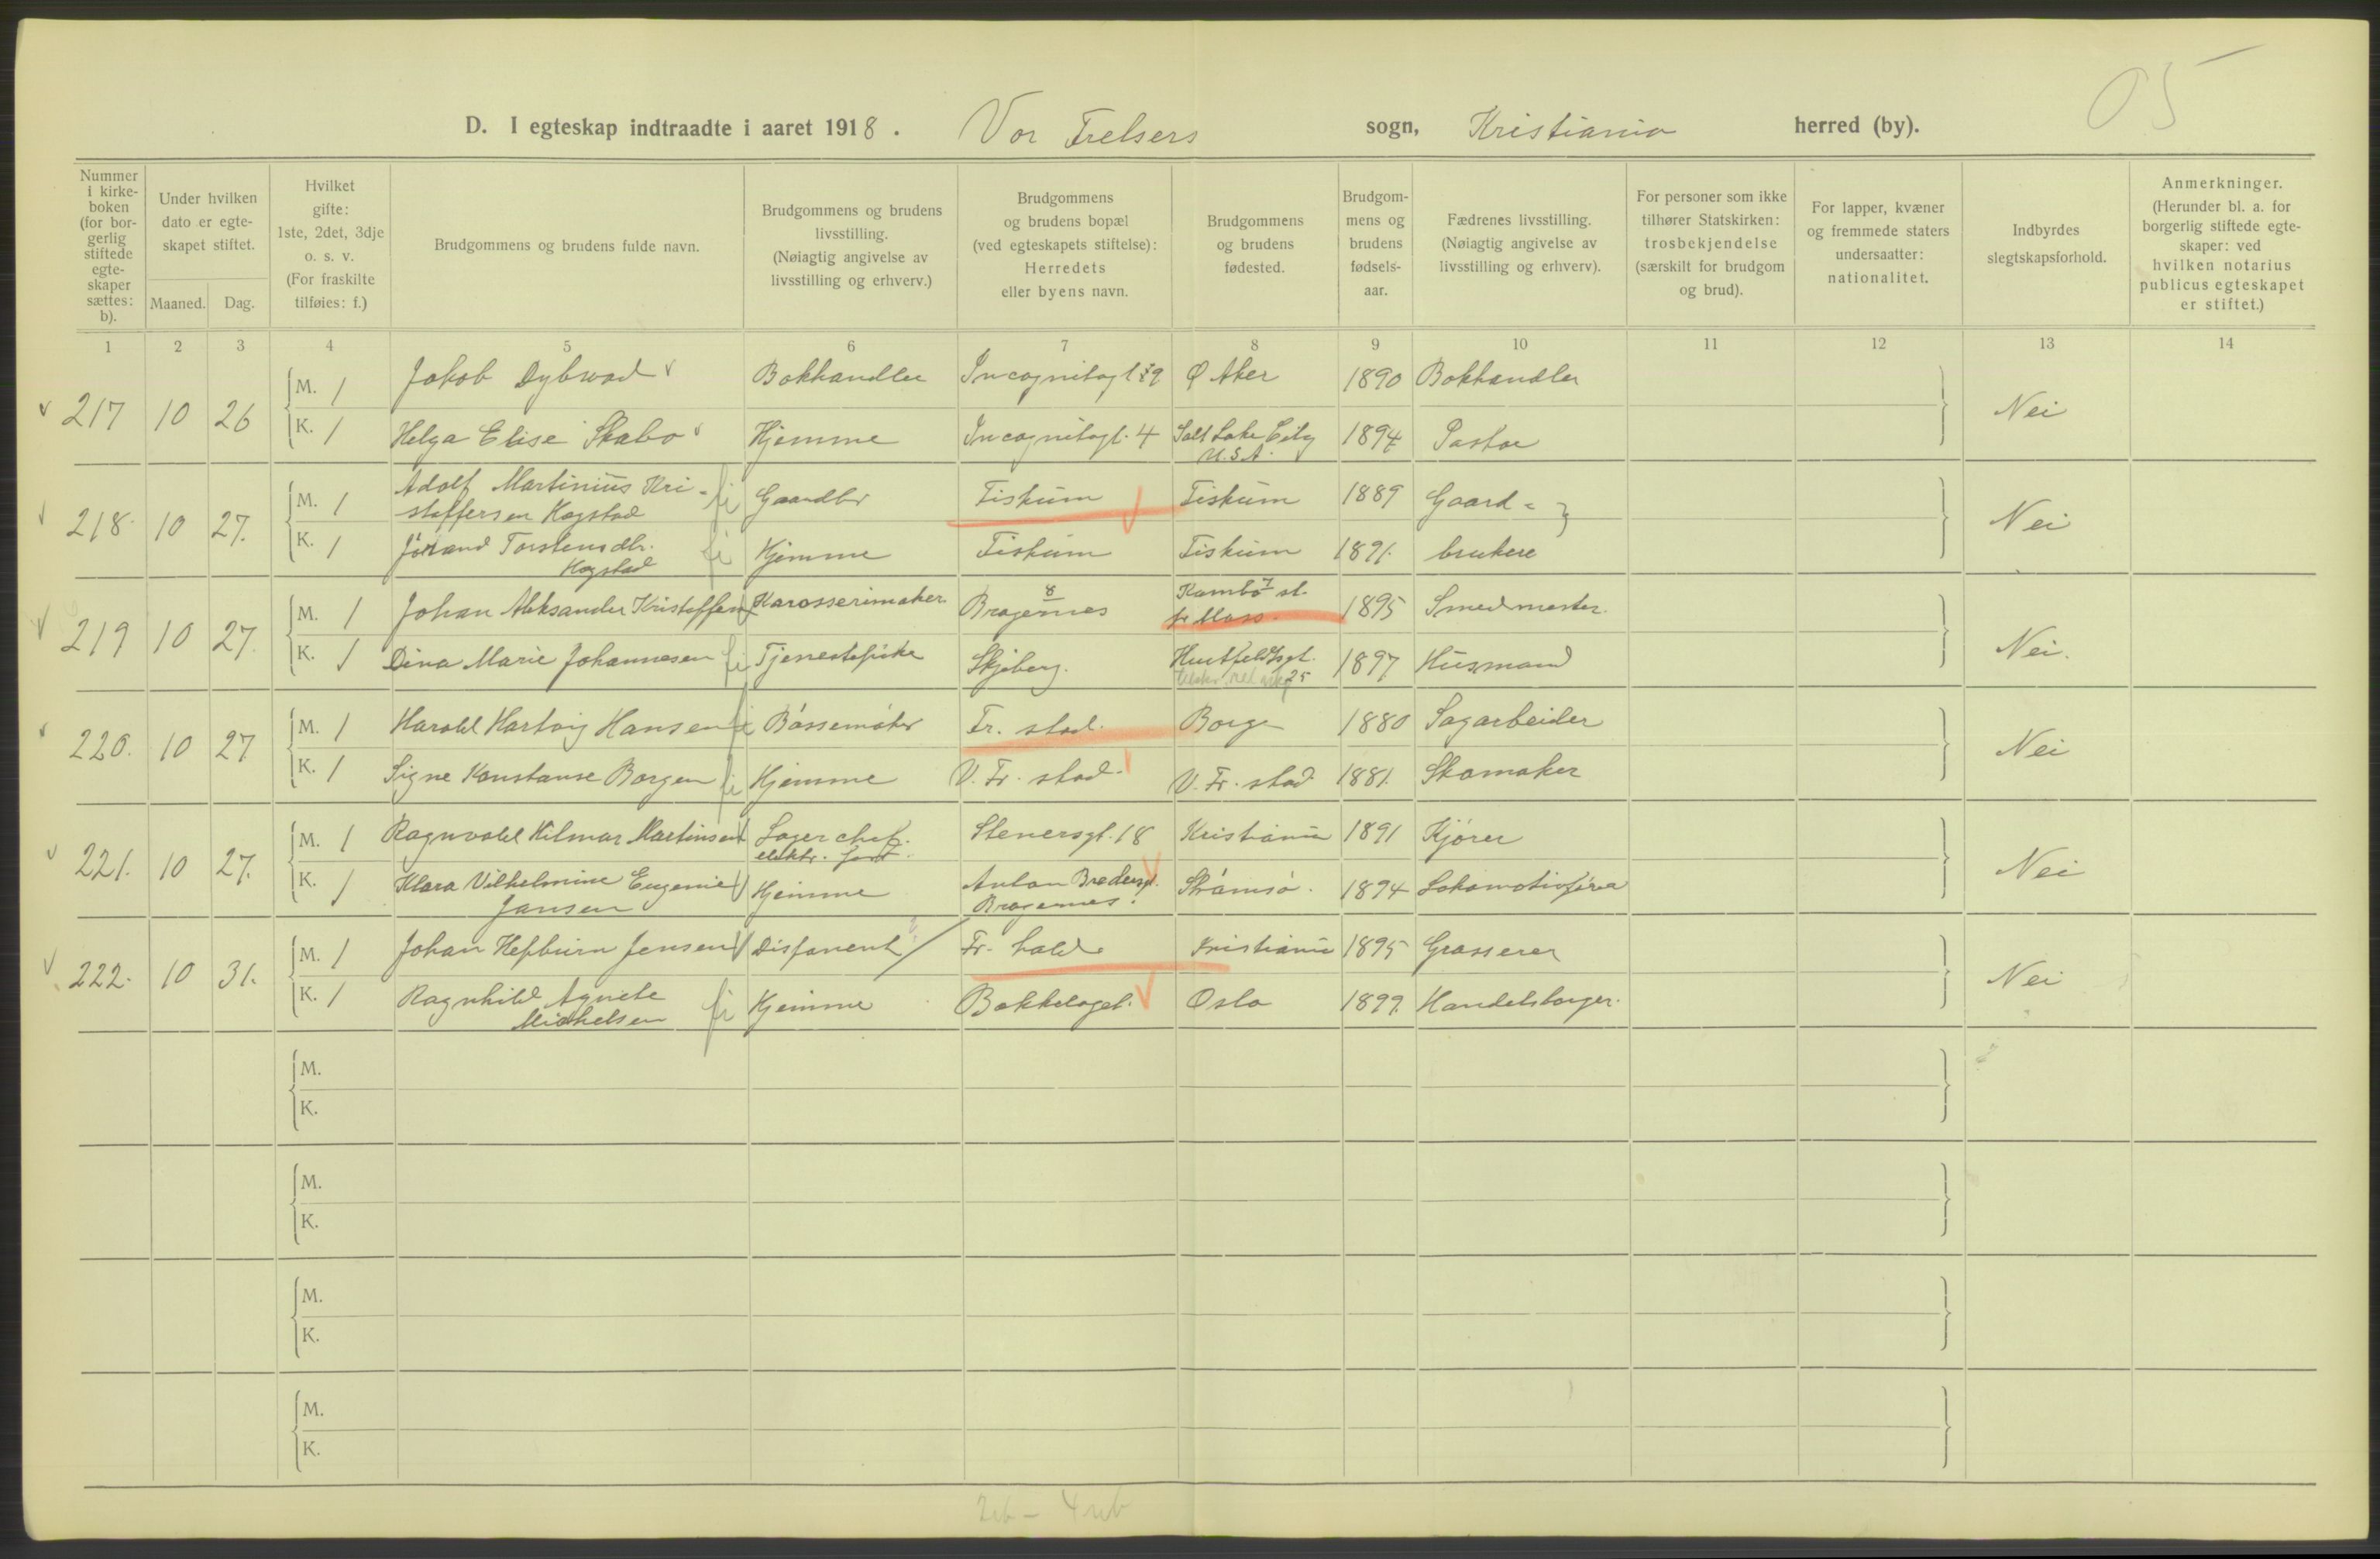 05
D. I egteskap indtraadte i aaret 1918. Vor Frelsers sogn, Kristiania herred (by).
Nummer i kirke-boken (for bor-gerlig stiftede egte-skaper sættes: b).
Under hvilken dato er egte-skapet stiftet.
Maaned. Dag.
Hvilket gifte: 1ste, 2det, 3dje o. s. v. (For fraskilte tilføies: f.)
Brudgommens og brudens fulde navn.
Brudgommens og brudens livsstilling. (Nøiagtig angivelse av livsstilling og erhverv.)
Brudgommens og brudens bopæl (ved egteskapets stiftelse): Herredets eller byens navn.
Brudgommens og brudens fødested.
Brudgom-mens og brudens fødsels-aar.
Fædrenes livsstilling. (Nøiagtig angivelse av livsstilling og erhverv).
For personer som ikke tilhører Statskirken: trosbekjendelse (særskilt for brudgom og brud).
For lapper, kvæner og fremmede staters undersaatter: nationalitet.
Indbyrdes slegtskapsforhold.
Anmerkninger. (Herunder bl. a. for borgerlig stiftede egte-skaper: ved hvilken notarius publicus egteskapet er stiftet.)
1 2 3 4 5 6 7 8 9 10 11 12 13 14
217 10 26 M. 1 Jakob Dybwad Bokhandler Incognitogt Ø Aker 1890 Bokhandler Nei
K. 1 Helga Elise Skabo Hjemme Incognitogt. 4 Salt Lake City U.S.A. 1894 Pastor
218. 10 27. M. 1 Adolf Martinius Kri-
stoffersen Kogstad Gaardbr Fiskum Fiskum 1889 Gaard- Nei
K. 1 Jørand Torstensdtr.
Kogstad Hjemme Fiskum Fiskum 1891. brukere
219 10 27. M. 1 Johan Aleksander Kristoffersen Karosserimaker Bragernes Kambo st. pr Moss. 1895 Smedmester. Nei.
K. 1 Dina Marie Johannesen Tjenestepike Skjeberg. Huitfeldtsgt. 25 1897 Husmand
220. 10 27 M. 1 Harald Hartvig Hansen Bøssemaker Fr. stad. Borge 1880 Sagarbeider Nei
K. 1 Signe Konstanse Borgen Hjemme V. Fr. stad. V. Fr. stad 1881. Skomaker
221. 10 27. M. 1 Ragnvald Hilmar Martinsen Lagerchef. elektr. forr. Stenersgt. 18 Kristiania 1891 Kjører Nei
K. 1 Klara Vilhelmine Eugenie
Jansen Hjemme Anton Bredersgt. Bragernes. Strømsø. 1894 Lokomotivfører
222. 10 31. M. 1 Johan Hepburn Jensen Disponent Fr. hald. Kristiania 1895 Grosserer Nei
K. 1 Ragnhild Agnete
Michelsen Hjemme Bekkelaget. Oslo 1899. Handelsborger.
M.
K.
M.
K.
M.
K.
M.
K.